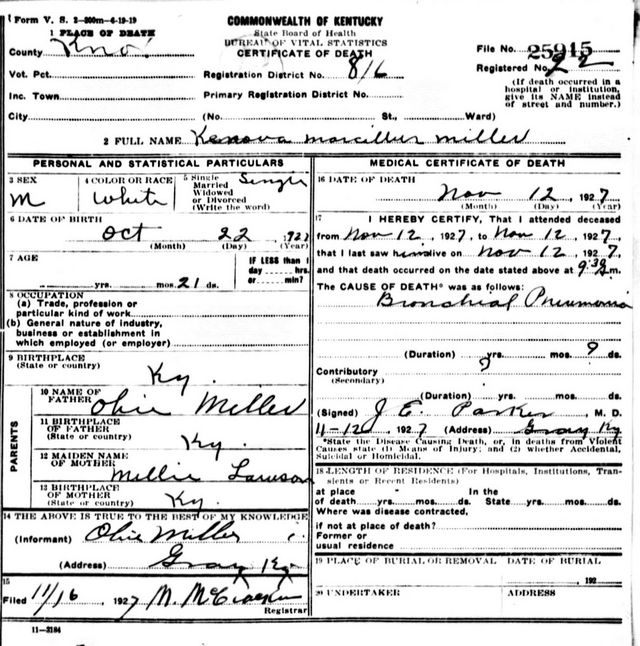 Form V. S. 2-300m-6-19-19
1 PLACE OF DEATH
County Kno
Vot. Pct.
Inc. Town
City
COMMONWEALTH OF KENTUCKY
State Board of Health
BUREAU OF VITAL STATISTICS
CERTIFICATE OF DEATH
Registration District No. 816
Primary Registration District No.
(No. St., Ward)
File No. 25915
Registered No. 22
(If death occurred in a
hospital or institution,
give its NAME instead
of street and number.)
2 FULL NAME Kenova Miller
PERSONAL AND STATISTICAL PARTICULARS
3 SEX
M
4 COLOR OR RACE
White
5 Single
Married
Widowed
or Divorced
(Write the word)
Single
6 DATE OF BIRTH
Oct 22 1927
(Month) (Day) (Year)
7 AGE
yrs. mos. 21 ds.
IF LESS than 1
day hrs.
or min?
8 OCCUPATION
(a) Trade, profession or
particular kind of work
(b) General nature of industry,
business or establishment in
which employed (or employer)
9 BIRTHPLACE
(State or country)
Ky.
PARENTS
10 NAME OF
FATHER
Obie Miller
11 BIRTHPLACE
OF FATHER
(State or country)
Ky.
12 MAIDEN NAME
OF MOTHER
Millie Lawson
13 BIRTHPLACE
OF MOTHER
(State or country)
Ky.
14 THE ABOVE IS TRUE TO THE BEST OF MY KNOWLEDGE
(Informant) Obie Miller
(Address) Gray Ky
15
Filed 11/16 1927 M.
Registrar
11-3184
MEDICAL CERTIFICATE OF DEATH
16 DATE OF DEATH
Nov 12, 1927
(Month) (Day) (Year)
17 I HEREBY CERTIFY, That I attended deceased
from Nov 12, 1927, to Nov 12, 1927,
that I last saw him alive on Nov 12, 1927,
and that death occurred on the date stated above at m.
The CAUSE OF DEATH* was as follows:
Bronchial Pneumonia
(Duration) yrs. mos. 9 ds.
Contributory
(Secondary)
(Duration) yrs. mos. ds.
(Signed) J. E. Parker, M. D.
11-12 1927 (Address) Gray Ky
*State the Disease Causing Death, or, in deaths from Violent
Causes state (1) Means of Injury; and (2) whether Accidental,
Suicidal or Homicidal.
18 LENGTH OF RESIDENCE (For Hospitals, Institutions, Tran-
sients or Recent Residents)
at place In the
of death yrs. mos. ds. State yrs. mos. ds.
Where was disease contracted,
if not at place of death?
Former or
usual residence
19 PLACE OF BURIAL OR REMOVAL DATE OF BURIAL
192
20 UNDERTAKER ADDRESS